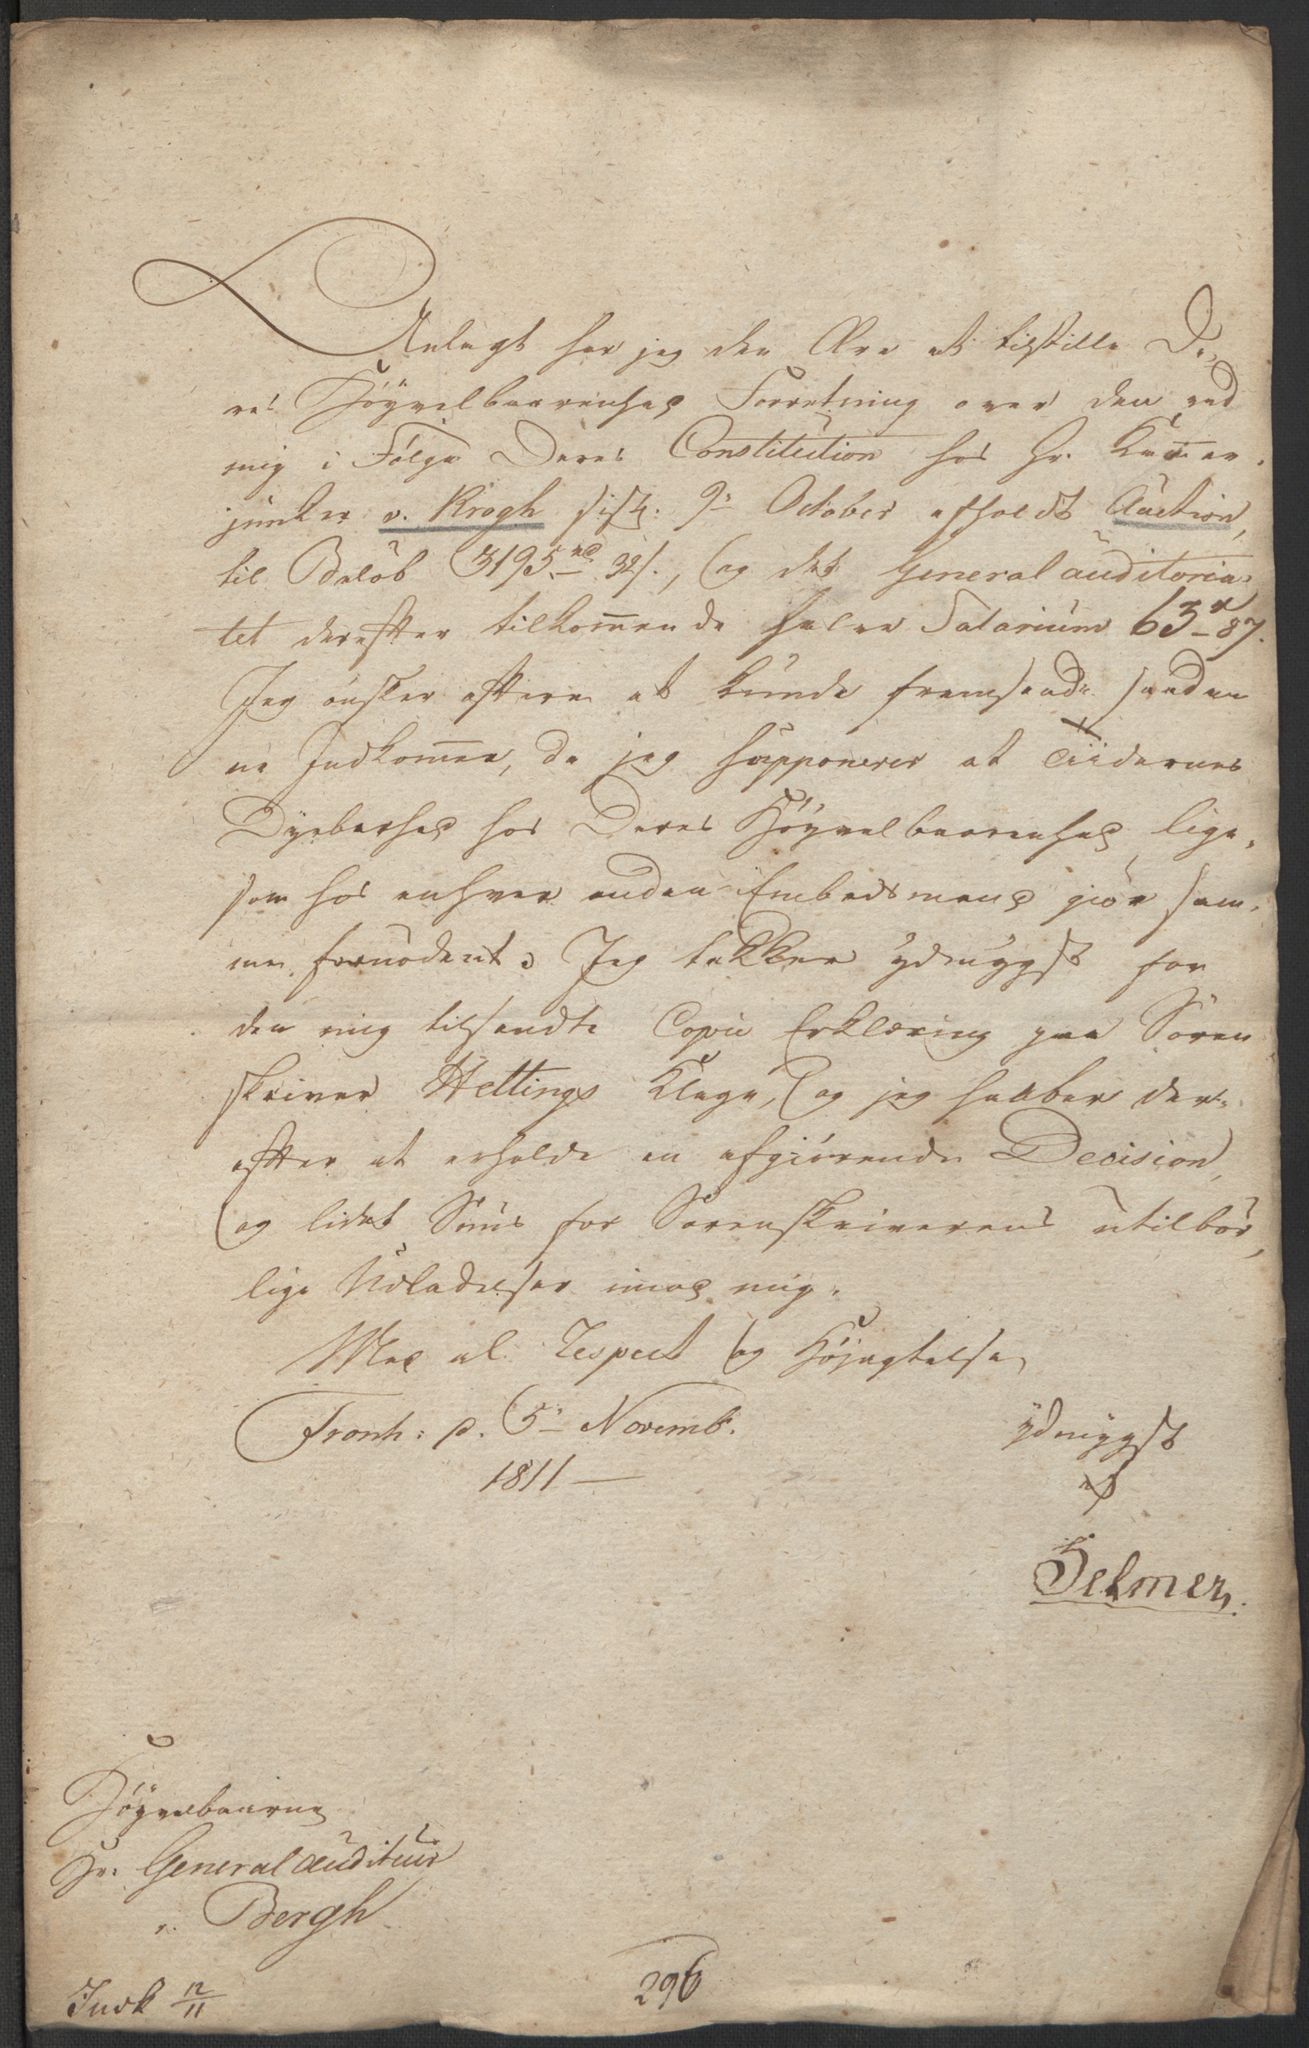 Anlagt har jeg den Ære at tilstille De-
res Höyvelbaarenhed Forretning over den ved
mig i Fölge Deres Constitution hos Hr. Kammer-
junker v. Krogh sistl: 9de October afholdt Auction,
til Belöb 3195 rd 32 s., og det Generalauditoria-
tet derefter tilkommende halve Salarium 63 r 87.
Jeg önsker oftere at kunde fremsende saadan-
ne Indkomme, da jeg supponerer at Tiidernes
Dyrbarhed hos Deres Höyvelbaarenhed, lige-
som hos enhver anden Embedsmand giör sam-
me fornödent. Jeg takker ydmygst for
den mig tilsendte Copie Erklæring paa Soren
skriver Hettings Klage, og jeg haaber der-
efter at erholde en afgiörende Decision,
og lidet Sens for Sorenskriverens utilbör-
lige Udladelser imod mig.
Med al Respect og Höjagtelse
Tronh: d. 5te Novemb. ydmygst
1811 —
Selmer.
Höyvelbaarne
Hr. Generalauditeur
v. Bergh
Indk 12/11
296